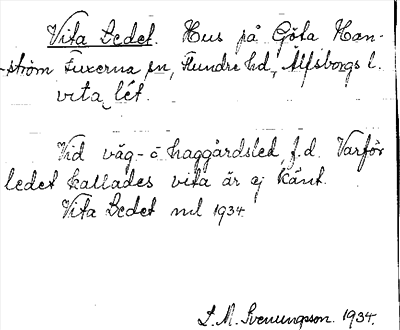 Vita Ledet. Hus på Göta Han-
-ström Fuxerna sn, Flundre hd, Älfsborgs l.
vita lét.
Vid väg- o haggårdsled f.d. Varför
ledet kallades vita är ej känt.
Vita Ledet nul 1934.
L. M. Svenungsson. 1934.